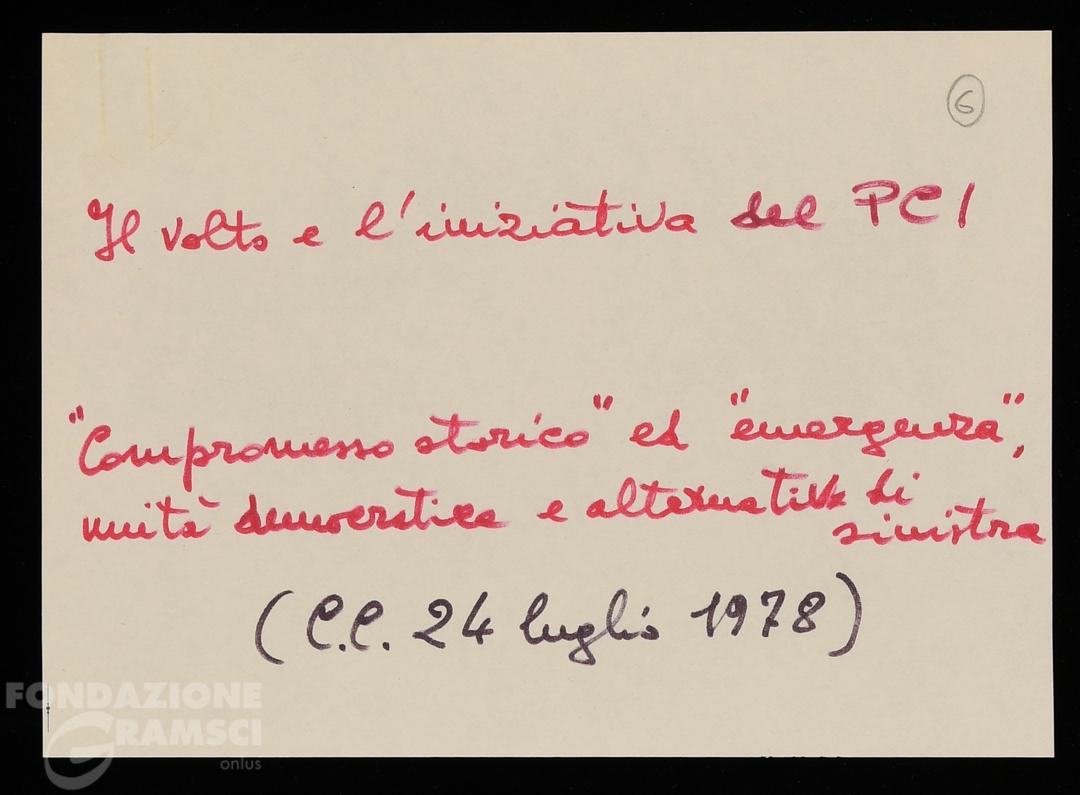 6
Il volto e l'iniziativa del PCI
"Compromesso storico" ed "emergenza",
unità democratica e alternativa di
sinistra
(C.C. 24 luglio 1978)
FONDAZIONE
GRAMSCI
onlus